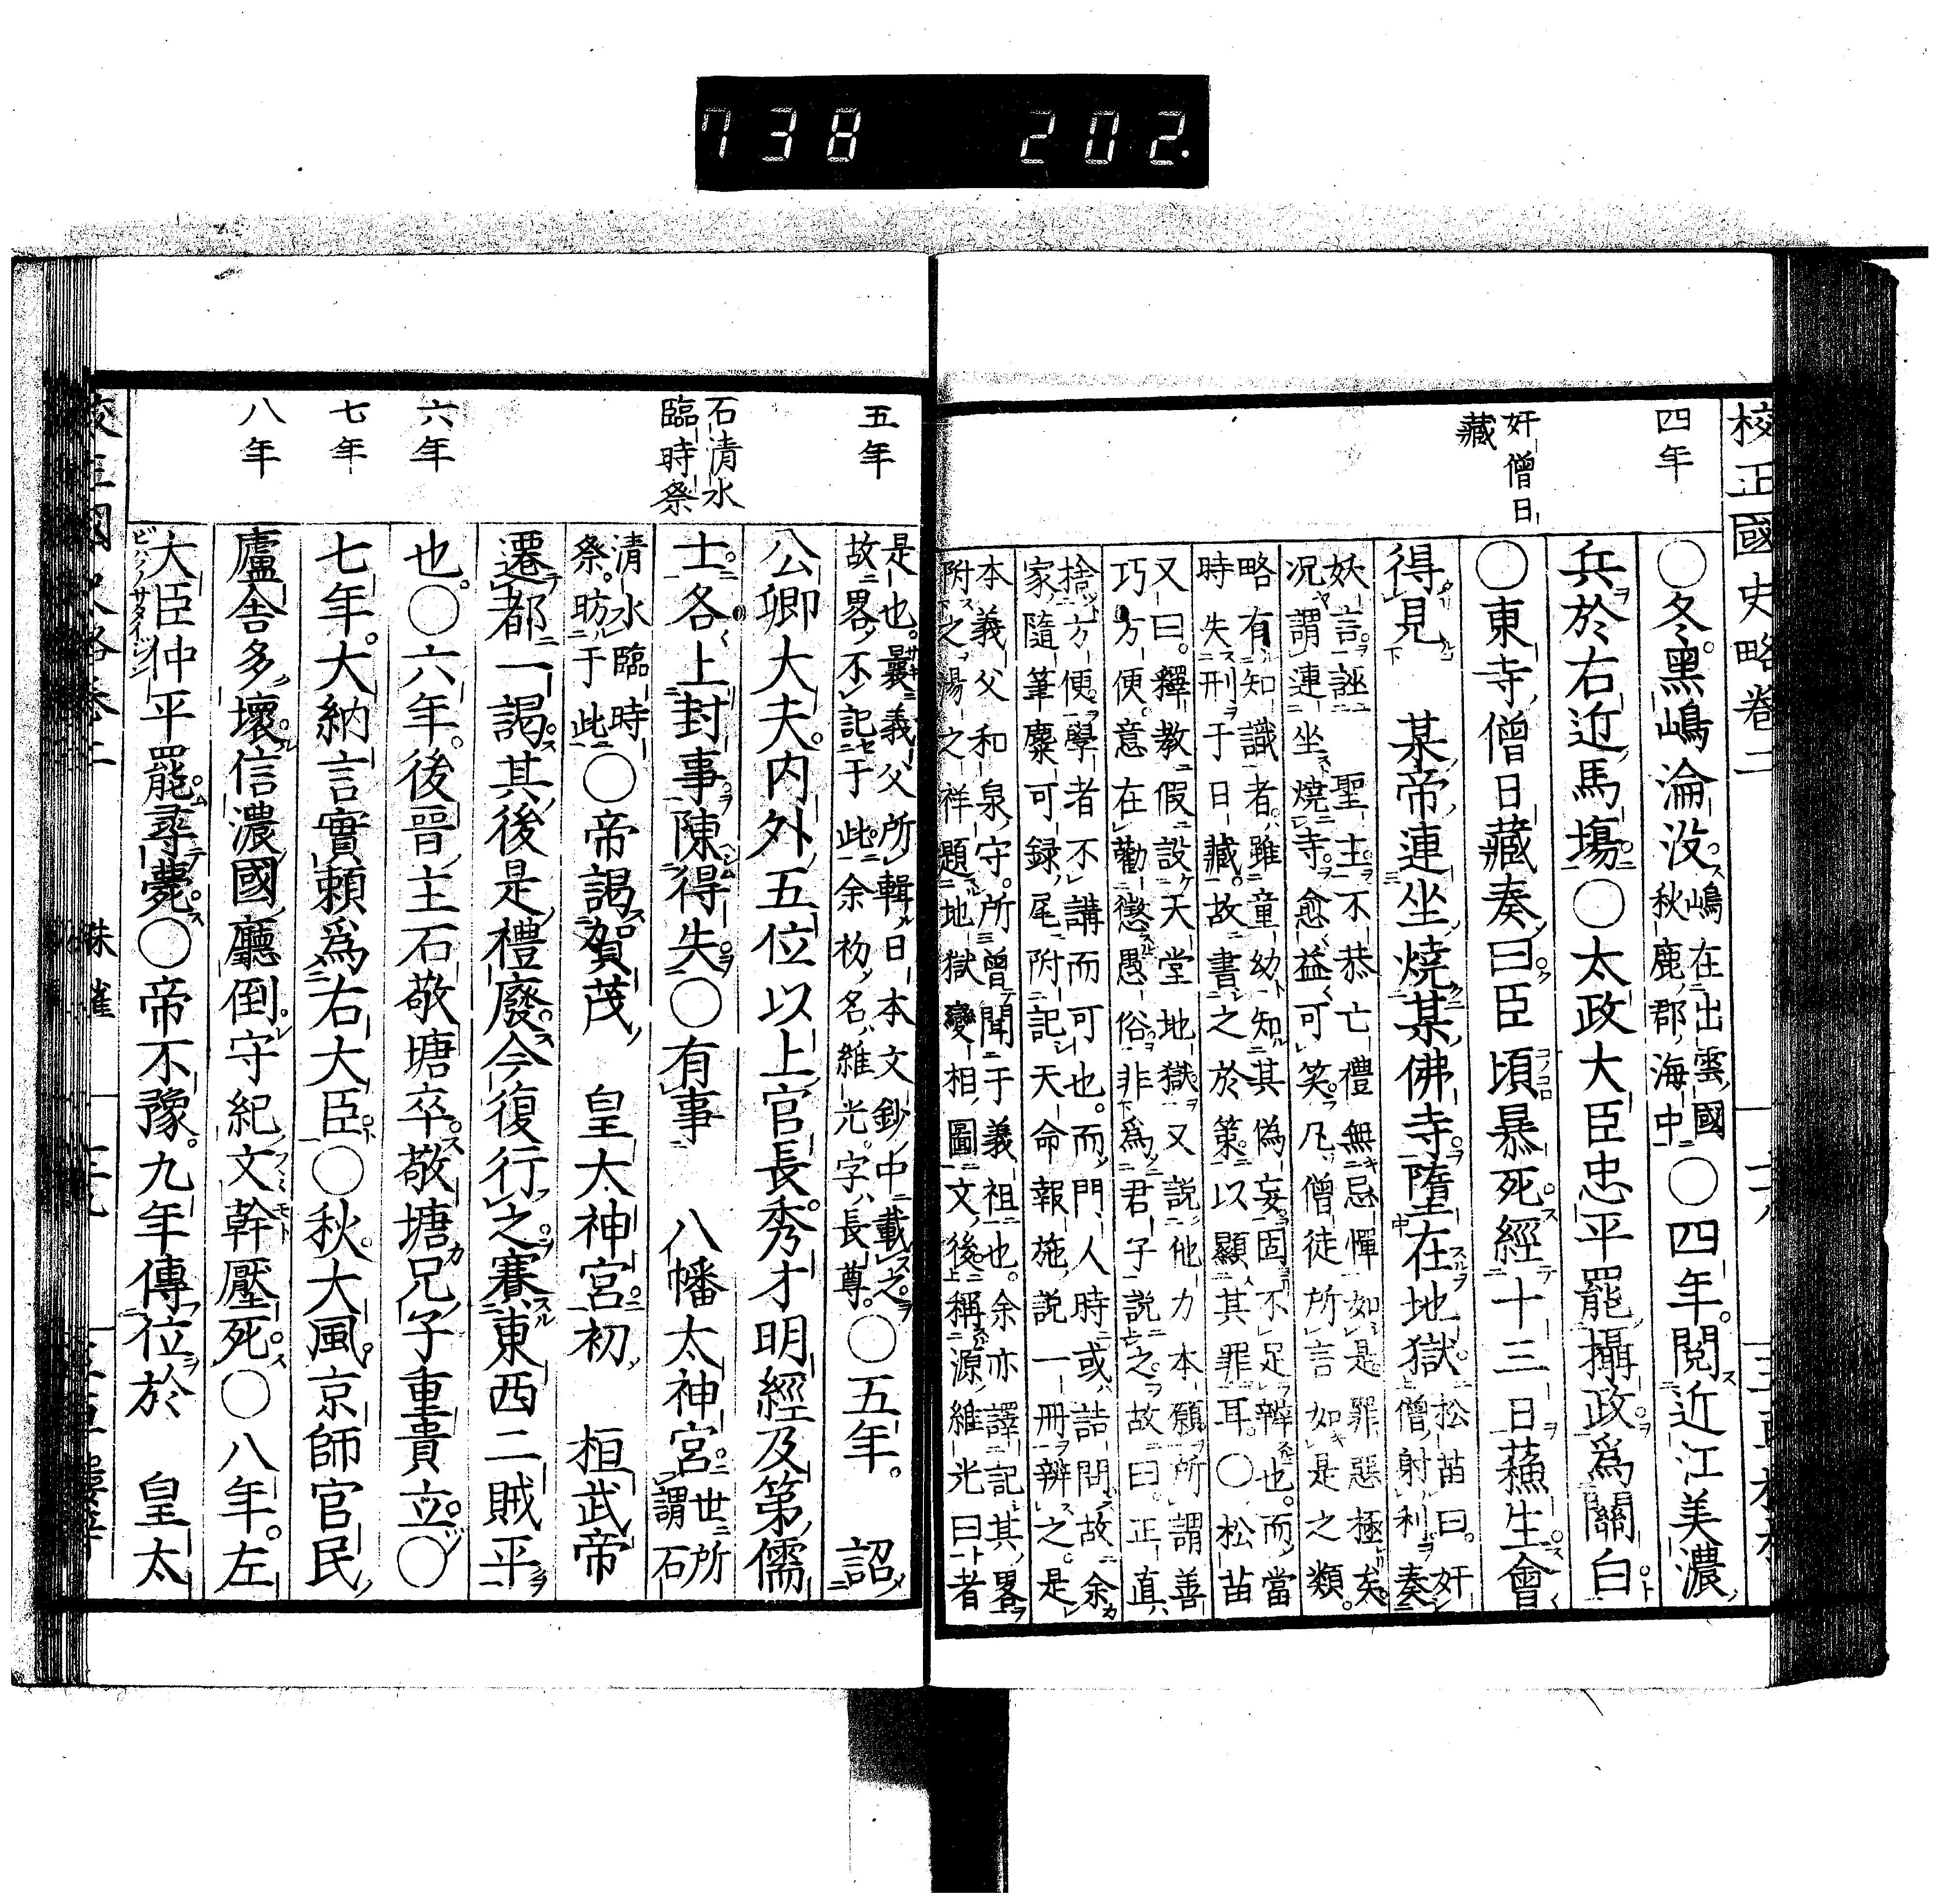 738 202.
校正國史略卷二
四年
奸僧日
藏
〇冬。黑嶋淪没嶋在出雲國
秋鹿郡海中〇四年。閲近江美濃
兵於右近馬場〇太政大臣忠平罷攝政爲關白
〇東寺僧日藏奏曰臣頃暴死經十三日蘓生會
得見 某帝連坐燒某佛寺墮在地獄松苗曰。奸
僧射利奏
妖言誣 聖主不恭亡禮無忌憚如是罪惡極矣
况謂連坐燒寺愈益可笑凡僧徒所言如是之類。
略有知識者雖童幼知其僞妄固不足辨也。而當
時失刑于日藏。故書之於策以顯其罪耳。〇松苗
又曰。釋教假設天堂地獄又説他力本願所謂善
巧方便。意在勸懲愚俗非爲君子説之。故曰。正直
捨方便。學者不講而可也。而門人時或詰問故余
家隨筆麋可録尾附記天命報施説一冊辨之。是
本義父和泉守。所曾聞于義祖也。余亦譯記其畧
附之湯之祥題地獄變相圖文後稱源維光曰者
五年
石清水
臨時祭
六年
七年
八年
是也。曩義父所輯日本文鈔中載之
故畧不記于此余初名維光。字長尊。〇五年。 詔
公卿大夫。内外五位以上官長秀才明經及第儒
士各上封事陳得失〇有事 八幡太神宮世所
謂石
清水臨時
祭。昉于此〇帝謁賀茂 皇太神宮初 桓武帝
遷都一謁其後是禮廢今復行之賽東西二賊平
也。〇六年。後晉主石敬瑭卒敬瑭兄子重貴立〇
七年。大納言實頼爲右大臣〇秋大風京師官民
廬舍多壞信濃國廳倒守紀文幹壓死〇八年。左
大臣仲平罷尋薨〇帝不豫。九年傳位於 皇太